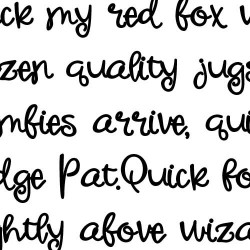 ck my red fox w
zen quality jugs
mbies arrive, qui
dge Pat.Quick fo
ghtly above wiza